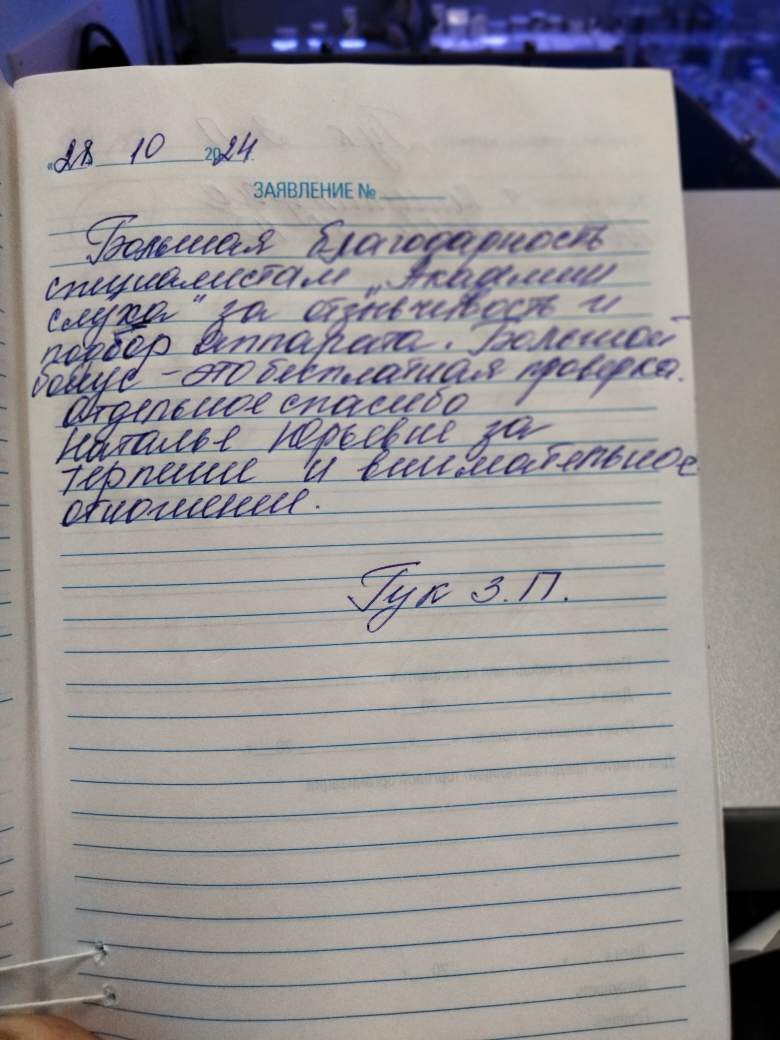 «28» 10 2024.
ЗАЯВЛЕНИЕ №
Большая благодарность
специалистам „Академии
слуха" за отзывчивость и
подбор аппарата. Большой
бонус - это бесплатная проверка.
Отдельное спасибо
Наталье Юрьевне за
терпение и внимательное
отношение.
Гук З.П.